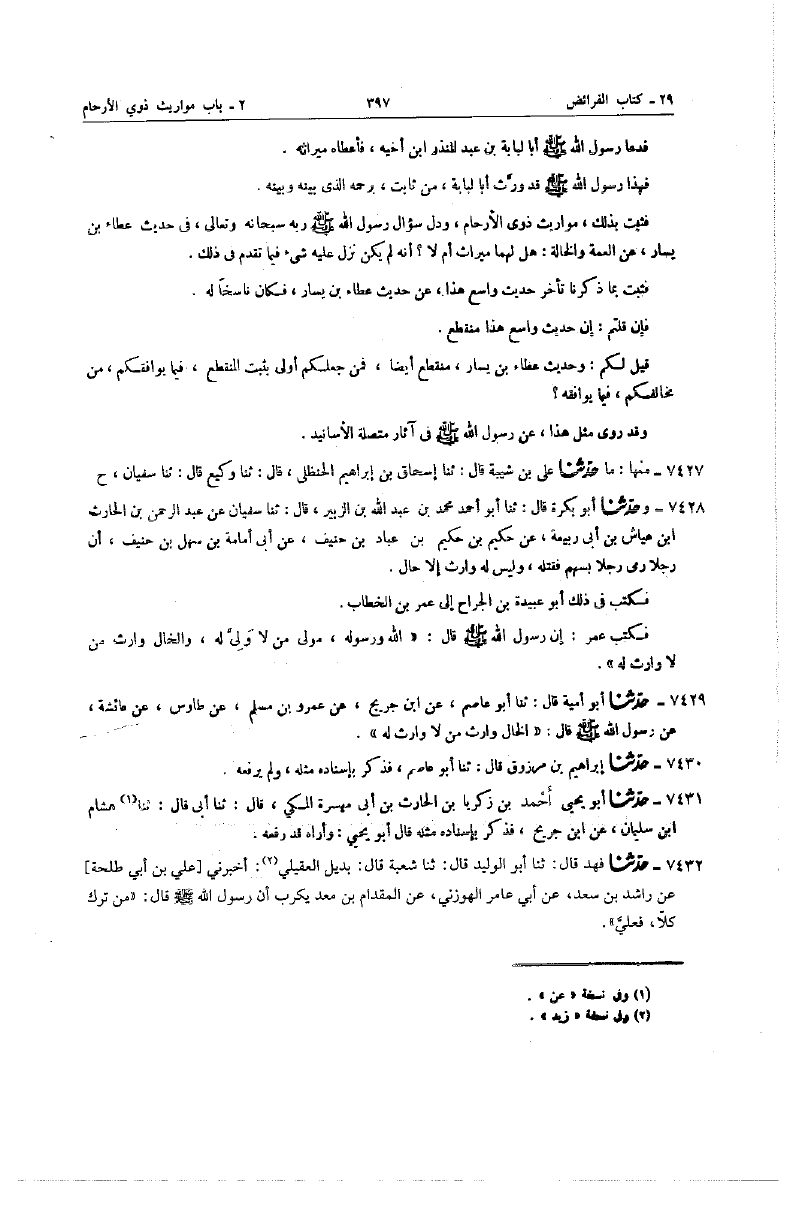 ٢٩ ـ كتاب الفرائض ٣٩٧ ٢ ـ باب مواريث ذوي الأرحام
فدعا رسول الله ﷺ أبا لبابة بن عبد المنذر ابن أخيه ، فأعطاه ميراثه .
فهذا رسول الله ﷺ قد ورَّث أبا لبابة ، من ثابت ، برحمه الذى بينه وبينه .
فثبت بذلك ، مواريث ذوى الأرحام ، ودل سؤال رسول الله ﷺ ربه سبحانه وتعالى ، فى حديث عطاء بن
يسار ، عن العمة والخالة : هل لهما ميراث أم لا ؟ أنه لم يكن نزل عليه شىء فيما تقدم فى ذلك .
فثبت بما ذكرنا تأخر حديث واسع هذا ، عن حديث عطاء بن يسار ، فكان ناسخاً له .
فإن قلتم : إن حديث واسع هذا منقطع .
قيل لكم : وحديث عطاء بن يسار ، منقطع أيضا ، فمن جعلكم أولى بثبت المنقطع ، فيما يوافقكم ، من
مخالفكم ، فيما يوافقه ؟
وقد روى مثل هذا ، عن رسول الله ﷺ فى آثار متصلة الأسانيد .
٧٤٢٧ ـ منها : ما حدثنا على بن شيبة قال : ثنا إسحاق بن إبراهيم الحنظلى ، قال : ثنا وكيع قال : ثنا سفيان ، ح
٧٤٢٨ ـ وحدثنا أبو بكرة قال : ثنا أبو أحمد محمد بن عبد الله بن الزبير ، قال : ثنا سفيان عن عبد الرحمن بن الحارث
ابن عياش بن أبى ربيعة ، عن حكيم بن حكيم بن عباد بن حنيف ، عن أبى أمامة بن سهل بن حنيف ، أن
رجلا رمى رجلا بسهم فقتله ، وليس له وارث إلا خال .
فكتب فى ذلك أبو عبيدة بن الجراح إلى عمر بن الخطاب .
فكتب عمر : إن رسول الله ﷺ قال : « الله ورسوله ، مولى من لا وَلِىَّ له ، والخال وارث من
لا وارث له » .
٧٤٢٩ ـ حدثنا أبو أمية قال : ثنا أبو عاصم ، عن ابن جريج ، عن عمرو بن مسلم ، عن طاوس ، عن عائشة ،
عن رسول الله ﷺ قال : « الخال وارث من لا وارث له » .
٧٤٣٠ ـ حدثنا إبراهيم بن مرزوق قال : ثنا أبو عاصم ، فذكر بإسناده مثله ، ولم يرفعه .
٧٤٣١ ـ حدثنا أبو يحيى أَحْمد بن زكريا بن الحارث بن أبى ميسرة المكى ، قال : ثنا أبى قال : ثنا(١) هشام
ابن سليمان ، عن ابن جريج ، فذكر بإسناده مثله قال أبو يحيى : وأراه قد رفعه .
٧٤٣٢ ـ حدثنا فهد قال : ثنا أبو الوليد قال : ثنا شعبة قال : بديل العقيلي(٢) : أخبرني [علي بن أبي طلحة]
عن راشد بن سعد، عن أبي عامر الهوزني، عن المقدام بن معد يكرب أن رسول الله ﷺ قال : «من ترك
كلّا، فعليَّ» .
(١) وفى نسخة « عن » .
(٢) وفى نسخة « زيد » .